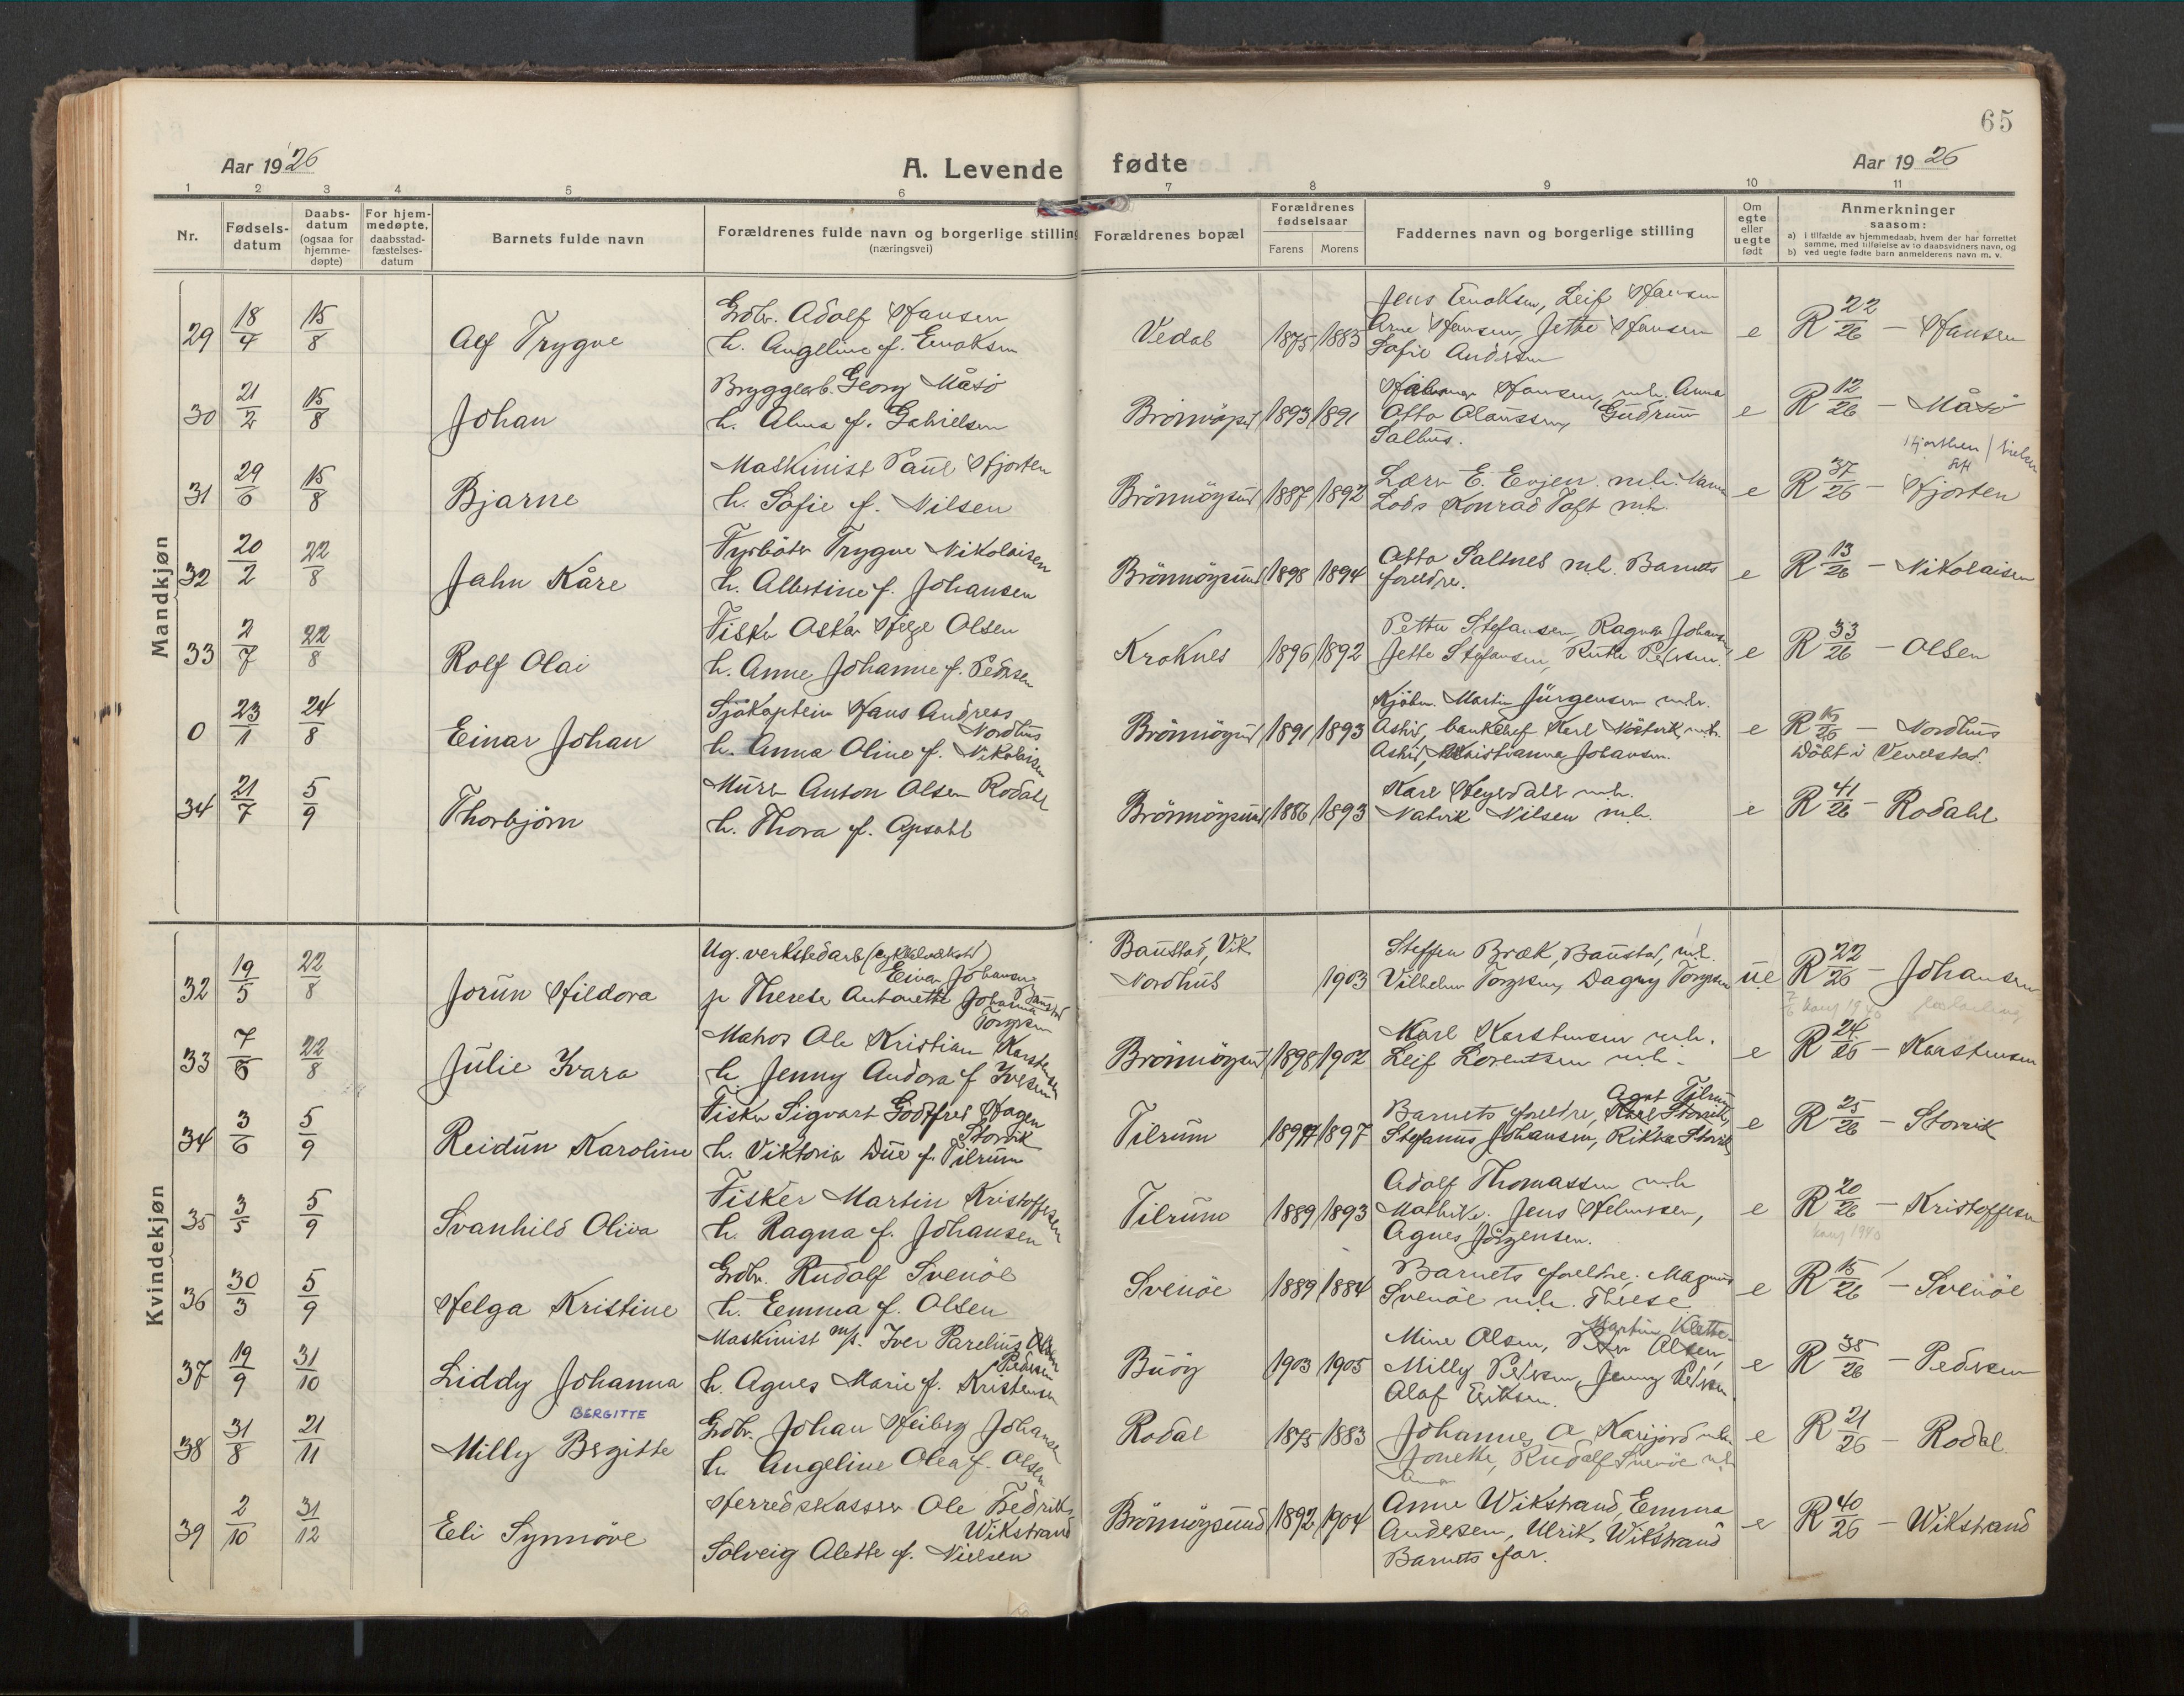 65
Aar 1926
A. Levende fødte
Aar 1926
1 2 3 4 5 6 7 8 9 10 11
Nr.
Fødsels-
datum
Daabs-
datum
(ogsaa for
hjemme-
døpte)
For hjem-
medøpte.
daabsstad-
fæstelses-
datum
Barnets fulde navn
Forældrenes fulde navn og borgerlige stilling
(næringsvei)
Forældrenes bopæl
Forældrenes
fødselsaar
Farens Morens
Faddernes navn og borgerlige stilling
Om
egte
eller
uegte
født
Anmerkninger
saasom:
a) i tilfælde av hjemmedaab, hvem der har forrettet
samme, med tilføielse av to daabsvidners navn, og
b) ved uegte fødte barn anmelderens navn m. v.
Mandkjøn
29 18/4 15/8 Alf Trygve
Grdbr. Adolf Hansen
h. Angeline f. Enoksen
Vedal 1875 1883
Jens Enoksen, Leif Hansen
Arne Hansen, Jethe Hansen
Sofie Andersen
e R 22/26 - Hansen
30 21/2 15/8 Johan
Bryggearb. Georg Måsö
h. Alma f. Gabrielsen
1893 1891
Hansen, m.h. Anna
Otto Olaussen, Gudrun
Salhus.
e R 12/26 - Måsö
31 29/6 15/8 Bjarne
Maskinist Paul Hjorten
h. Sofie f. Nilsen
Brönnöysund 1887 1892
Lærer E. Evjen m.h.
Lods Konrad Toft m.h.
e R 37/26 - Hjorten
32 20/2 22/8 Jahn Kåre
Fyrböter Trygve Nikolaisen
h. Albertine f. Johansen
Brönnöysund 1898 1894
Otto Saltnes m.h. Barnets
foreldre.
e R 13/26 - Nikolaisen
33 2/7 22/8 Rolf Olai
Fisker Oskar Helge Olsen
h. Anne Johanne f. Pedersen
Kroknes 1896 1892
Petter Stefansen, Ragnar Johansen
Jette Stefansen, Ruth Petersen.
e R 33/26 - Olsen
0 23/1 24/8 Einar Johan
Sjökaptein Hans Andreas
Nordhus
h. Anna Oline f. Nikolaisen
Brönnöysund 1891 1893
Kjöbm. Martin Jürgensen m.h.
bankchef Karl m.h.
Kristianna Johansen.
e R 15/26 - Nordhus
Döbt i Vevelstad.
34 21/7 5/9 Thorbjörn
Murer Anton Olsen Rodahl
h. Thora f. Opsahl
Brönnöysund 1886 1893
Karl Heyerdahl m.h.
Nilsen m.h.
e R 41/26 - Rodahl
Kvindekjøn
32 19/5 22/8 Jorun Hildora
Ug. verkstedarb.
Einar Johansen
Baustad
p. Therese Antonette Johanna
Torgersen
Baustad, Vik
Nordhus 1903
Steffen Bræk, Baustad, m.h.
Vilhelm Torgersen, Dagny Torgersen
ue R 22/26 - Johansen
33 7/6 22/8 Julie Ivara
Matros Ole Kristian Karstensen
h. Jenny Andora f. Iversen
Brönnöysund 1898 1902
Karl Karstensen m.h.
Leif Lorentsen m.h.
e R 24/26 - Karstensen
34 3/6 5/9 Reidun Karoline
Fisker Sigvart Godtfred Hagen
Storvik
h. Viktoria Due f. Tilrum
Tilrum 1897
Agnt Tilrum
Barnets foreldre,
Stefanus Johansen, Rikka Storvik
e R 25/26 - Storvik
35 3/5 5/9 Svanhild Oliva
Fisker Martin Kristoffersen
h. Ragna f. Johansen
Tilrum 1889 1893
Adolf Thomassen m.h.
Mathilde. Jens Helmersen,
Agnes Jörgensen.
e R 20/26 - Kristoffersen
36 30/3 5/9 Helga Kristine
Grdbr. Rudolf Svenöe
h. Emma f. Olsen
Svenöe 1889 1884
Barnets foreldre. Magnus
Svenöe m.h. Therese
e R 15/26 - Svenöe
37 19/9 31/10 Liddy Johanna
Maskinist m/s. Iver Parelius
Pedersen
h. Agnes Marie f. Kristensen
Buöy 1903 1905
Martin Klette
Mine Olsen, Olsen,
Milly Petersen, Jenny Petersen
Olaf Eriksen.
e R 35/26 - Pedersen
BERGITTE
38 31/8 21/11 Milly Birgitte
Grdbr. Johan Heiberg Johansen
h. Angeline Olea f. Olsen
Rodal 1875 1883
Johannes O Karijord m.h.
Jonette, Rudolf Svenöe m.h.
e R 21/26 - Rodal.
39 2/10 31/12 Eli Synnöve
Herredskasserer Ole Fredrik
Wikstrand
Solveig Alette f. Nielsen
Brönnöysund 1892 1904
Anne Wikstrand, Emma
Andersen, Ulrik Wikstrand
Barnets far.
e R 40/26 - Wikstrand